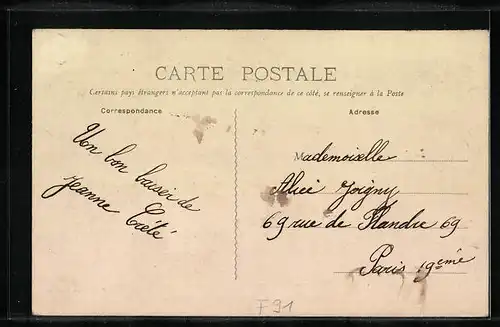 CARTE POSTALE
Certains pays étrangers n'acceptant pas la correspondance de ce côté, se renseigner à la Poste
Correspondance
Adresse
Un bon baiser de
Jeanne Crété
Mademoiselle
Alice Joigny
69 rue de Flandre 69
Paris 19ème
F91